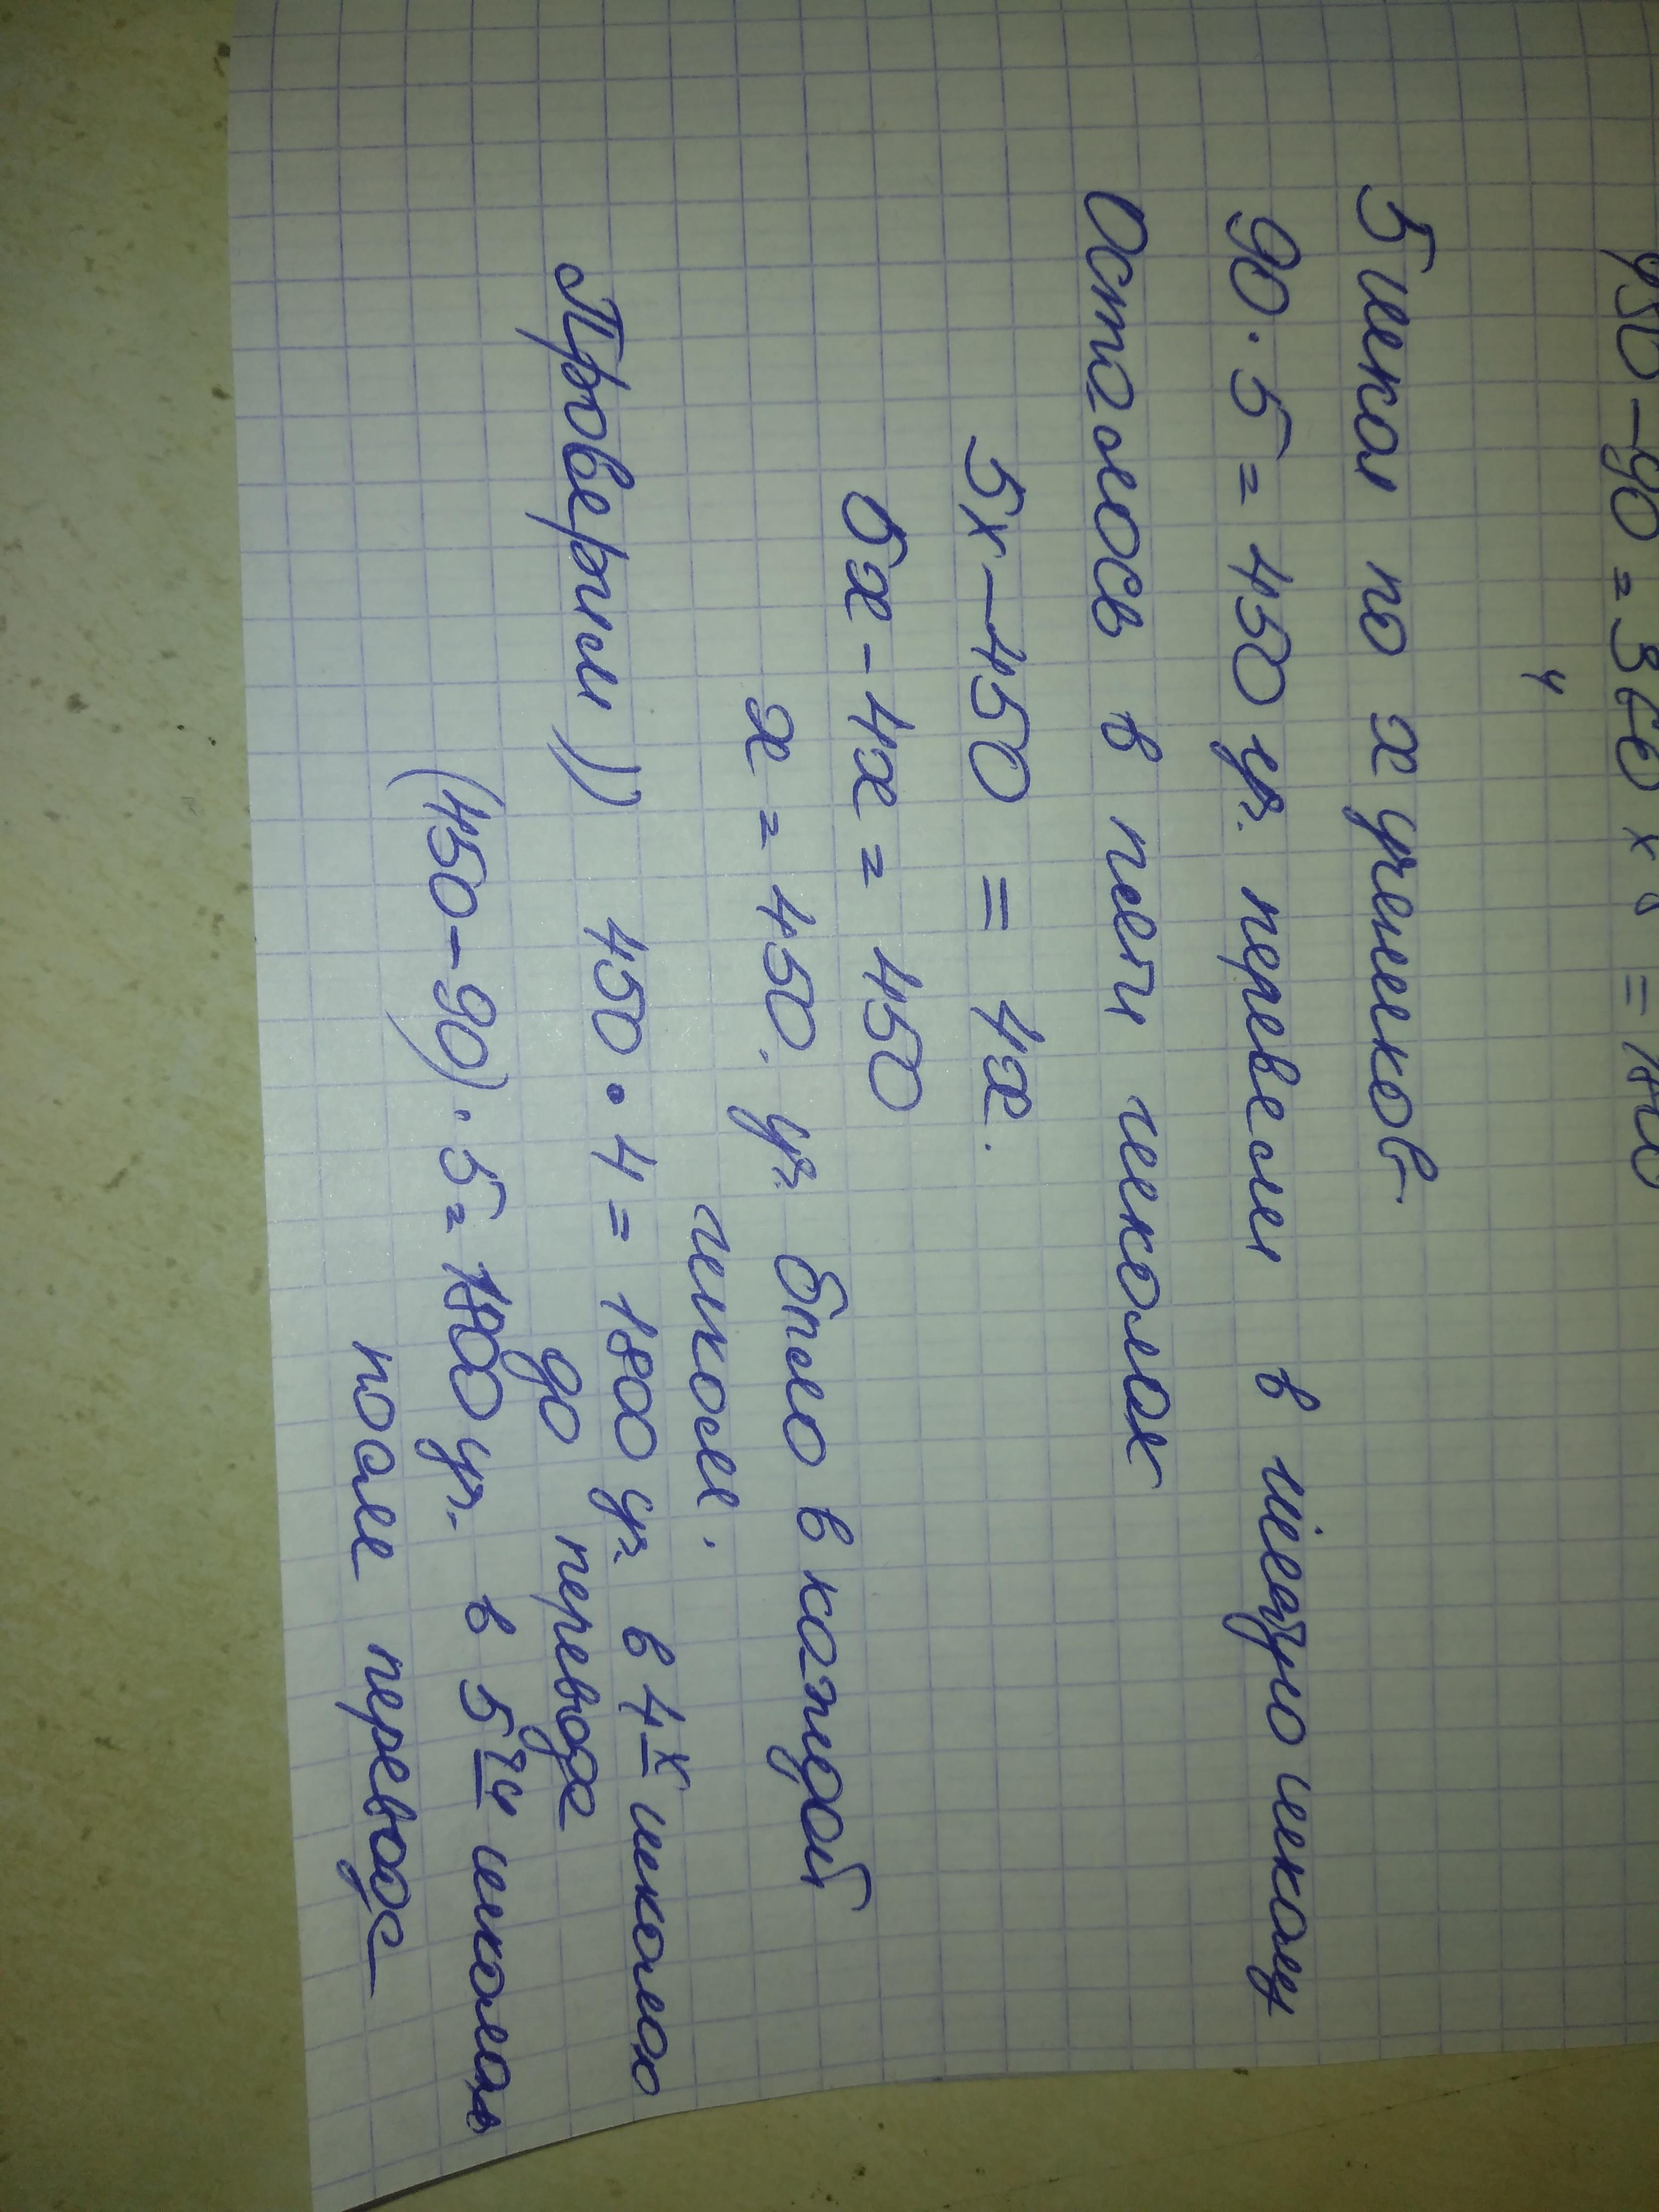 450-90=360 x 5 = 1800
4
5 школ по x учеников
90·5=450 уч. перевели в шестую школу
Осталось в пяти школах
5x-450 = 4x.
5x-4x=450
x=450. уч. было в каждой
школе.
Проверим)) 450·4=1800 уч. в 4х школах
до перевода
(450-90)·5=1800 уч. в 5ти школах
после перевода